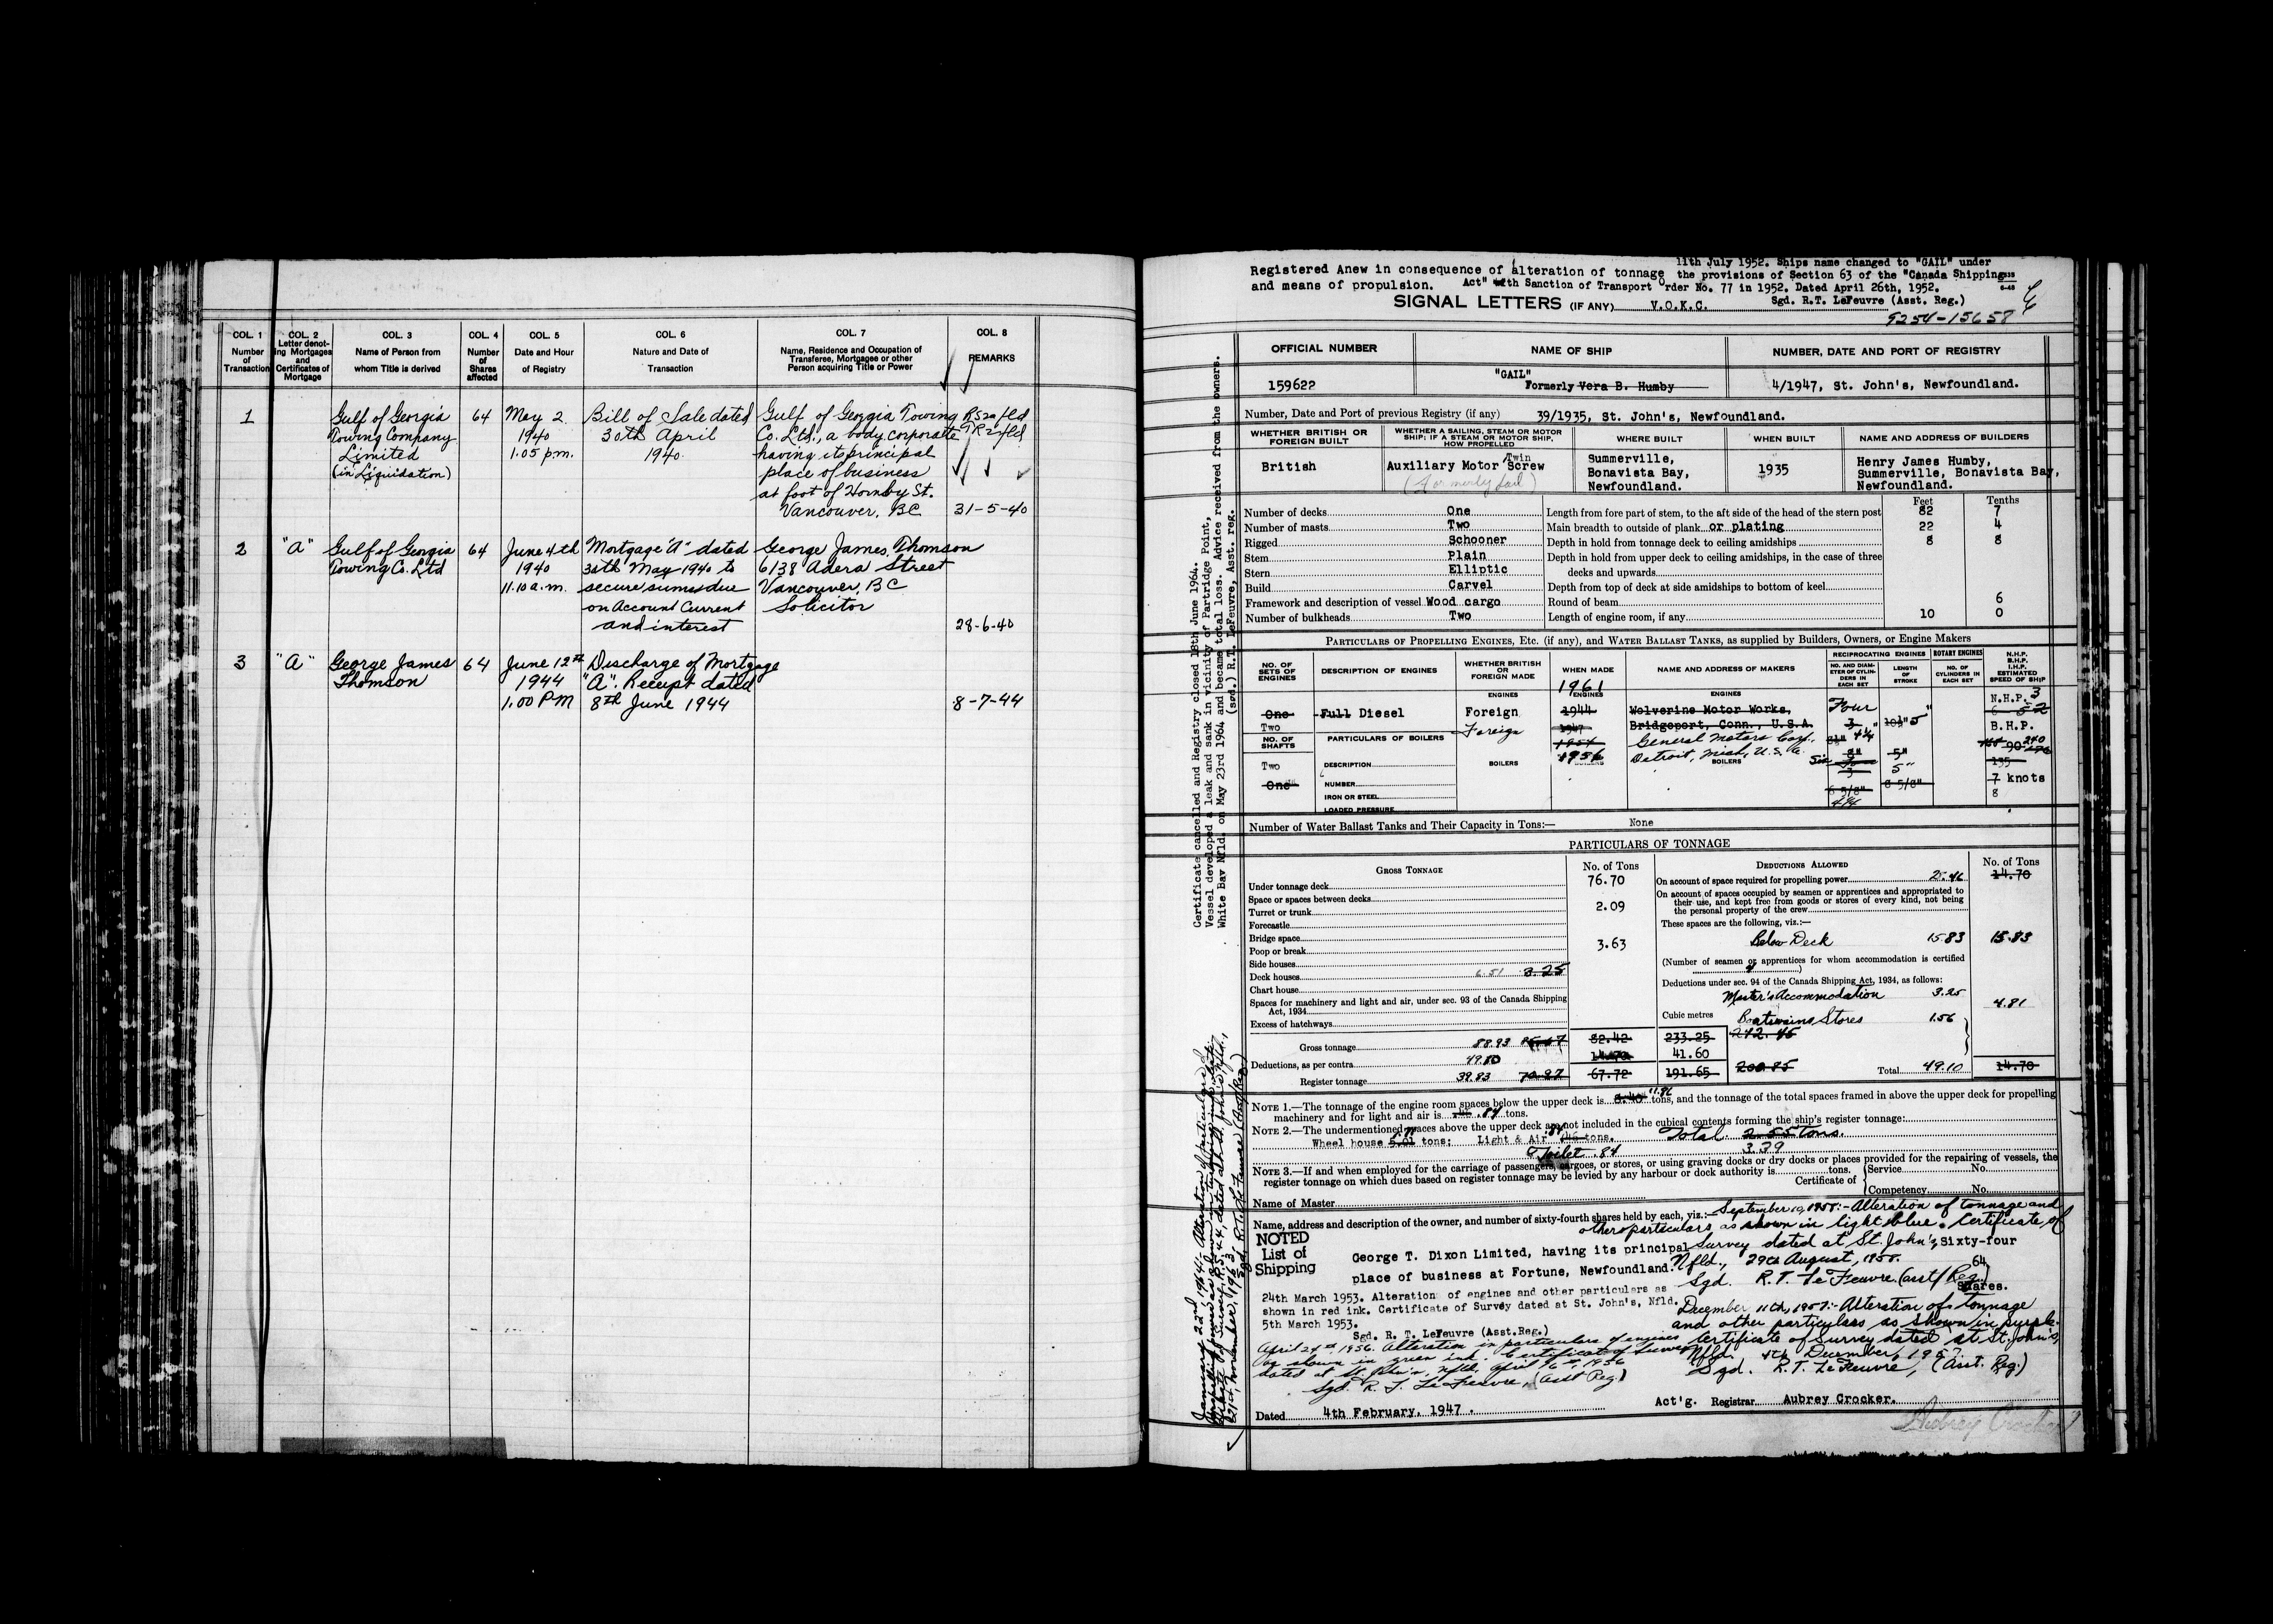 COL. 1
Number
of
Transaction
COL. 2
Letter denot-
ing Mortgages
and
Certificates of
Mortgage
COL. 3
Name of Person from
whom Title is derived
COL. 4
Number
of
Shares
affected
COL. 5
Date and Hour
of Registry
COL. 6
Nature and Date of
Transaction
COL. 7
Name, Residence and Occupation of
Transferee, Mortgagee or other
Person acquiring Title or Power
COL. 8
REMARKS
1
Gulf of Georgia
Towing Company
Limited
(in Liquidation)
64
May 2
1940
1.05 p.m.
Bill of Sale dated
30th April
1940
Gulf of Georgia Towing
Co. Ltd., a body corporate
having its principal
place of business
at foot of Hornby St.
Vancouver, BC
31-5-40
2
"A"
Gulf of Georgia
Towing Co. Ltd
64
June 4th
1940
11.10 a.m.
Mortgage "A" dated
30th May 1940 to
secure sums due
on Account Current
and interest
George James Thomson
6138 Adera Street
Vancouver, BC
Solicitor
28-6-40
3
"A"
George James
Thomson
64
June 12th
1944
1.00 PM
Discharge of Mortgage
"A". Receipt dated
8th June 1944
8-7-44
Registered Anew in consequence of alteration of tonnage
and means of propulsion.
11th July 1952. Ships name changed to "GAIL" under
the provisions of Section 63 of the "Canada Shipping
Act" with Sanction of Transport Order No. 77 in 1952. Dated April 26th, 1952.
Sgd. R.T. LeFeuvre (Asst. Reg.)
SIGNAL LETTERS (IF ANY) V.O.K.C.
9254-15658
OFFICIAL NUMBER
NAME OF SHIP
NUMBER, DATE AND PORT OF REGISTRY
159622
"GAIL"
Formerly Vera B. Humby
4/1947, St. John's, Newfoundland.
Number, Date and Port of previous Registry (if any) 39/1935, St. John's, Newfoundland.
WHETHER BRITISH OR
FOREIGN BUILT
WHETHER A SAILING, STEAM OR MOTOR
SHIP; IF A STEAM OR MOTOR SHIP,
HOW PROPELLED
WHERE BUILT
WHEN BUILT
NAME AND ADDRESS OF BUILDERS
British
Twin
Auxiliary Motor Screw
(formerly Sail)
Summerville,
Bonavista Bay,
Newfoundland.
1935
Henry James Humby,
Summerville, Bonavista Bay,
Newfoundland.
Feet Tenths
Number of decks One Length from fore part of stem, to the aft side of the head of the stern post 82 7
Number of masts Two Main breadth to outside of plank or plating 22 4
Rigged Schooner Depth in hold from tonnage deck to ceiling amidships 8 8
Stem Plain Depth in hold from upper deck to ceiling amidships, in the case of three
Stern Elliptic decks and upwards
Build Carvel Depth from top of deck at side amidships to bottom of keel
Framework and description of vessel Wood cargo Round of beam 6
Number of bulkheads Two Length of engine room, if any 10 0
PARTICULARS OF PROPELLING ENGINES, ETC. (if any), and WATER BALLAST TANKS, as supplied by Builders, Owners, or Engine Makers
NO. OF
SETS OF
ENGINES
DESCRIPTION OF ENGINES
WHETHER BRITISH
OR
FOREIGN MADE
WHEN MADE
NAME AND ADDRESS OF MAKERS
RECIPROCATING ENGINES
NO. AND DIAM-
ETER OF CYLIN-
DERS IN
EACH SET
LENGTH
OF
STROKE
ROTARY ENGINES
NO. OF
CYLINDERS IN
EACH SET
N.H.P.
B.H.P.
I.H.P.
ESTIMATED
SPEED OF SHIP
1961
ENGINES
ENGINES
ENGINES
One
Two
Full Diesel
Foreign
Foreign
1944
1947
1954
1956
Wolverine Motor Works,
Bridgeport, Conn., U.S.A.
General Motors Corp.,
Detroit, Mich, U.S.A.
Four
N.H.P. 3
B.H.P.
240
135
7 knots
8
NO. OF
SHAFTS
Two
One
PARTICULARS OF BOILERS
DESCRIPTION
NUMBER
IRON OR STEEL
LOADED PRESSURE
BOILERS
BOILERS
5"
8 5/8"
6 5/8"
Number of Water Ballast Tanks and Their Capacity in Tons:— None
PARTICULARS OF TONNAGE
GROSS TONNAGE
No. of Tons
DEDUCTIONS ALLOWED
No. of Tons
Under tonnage deck 76.70
Space or spaces between decks
Turret or trunk 2.09
Forecastle
Bridge space
Poop or break 3.63
Side houses
Deck houses 6.51 3.25
Chart house
Spaces for machinery and light and air, under sec. 93 of the Canada Shipping
Act, 1934
Excess of hatchways
Gross tonnage 88.93 82.42 233.25 242.45
Deductions, as per contra 14.70 41.60
Register tonnage 39.83 70.97 67.72 191.65 200.85
On account of space required for propelling power 25.46 14.70
On account of spaces occupied by seamen or apprentices and appropriated to
their use, and kept free from goods or stores of every kind, not being
the personal property of the crew
These spaces are the following, viz.:—
Below Deck 15.83 15.83
(Number of seamen or apprentices for whom accommodation is certified
Deductions under sec. 94 of the Canada Shipping Act, 1934, as follows:
Master's Accommodation 3.25
4.81
Cubic metres
Boatswains Stores 1.56
Total 49.10 14.70
NOTE 1.—The tonnage of the engine room spaces below the upper deck is 11.86 tons, and the tonnage of the total spaces framed in above the upper deck for propelling
machinery and for light and air is .84 tons.
NOTE 2.—The undermentioned spaces above the upper deck are not included in the cubical contents forming the ship's register tonnage:
Wheel house tons; Light & Air tons. Total 2.55 tons.
Toilet .84 3.39
NOTE 3.—If and when employed for the carriage of passengers, cargoes, or stores, or using graving docks or dry docks or places provided for the repairing of vessels, the
register tonnage on which dues based on register tonnage may be levied by any harbour or dock authority is tons.
Certificate of Service No.
Competency No.
Name of Master
Name, address and description of the owner, and number of sixty-fourth shares held by each, viz.:—
September 10, 1955:- Alteration of tonnage and
other particulars as shown in light blue. Certificate of
Survey dated at St. John's,
Nfld., 29th August, 1955.
Sgd. R.T. LeFeuvre (asst Reg.)
NOTED
List of
Shipping
George T. Dixon Limited, having its principal
place of business at Fortune, Newfoundland.
Sixty-four
64
Shares.
24th March 1953. Alteration of engines and other particulars as
shown in red ink. Certificate of Survey dated at St. John's, Nfld.
5th March 1953.
Sgd. R. T. LeFeuvre (Asst.Reg.)
December 11th, 1957:- Alteration of tonnage
and other particulars as shown in purple.
Certificate of Survey dated at St. John's,
Nfld. 4th December, 1957.
Sgd. R.T. LeFeuvre, (Asst. Reg.)
April 24th, 1956. Alteration in particulars of engines
as shown in green ink. Certificate of Survey
dated at St. John's, Nfld. April 16th, 1956
Sgd. R. T. LeFeuvre, (Asst Reg.)
Dated 4th February, 1947.
Act'g. Registrar Aubrey Crocker.
Aubrey Crocker
Certificate cancelled and Registry closed 18th June 1964.
Vessel developed a leak and sank in vicinity of Partridge Point,
White Bay Nfld. on May 23rd 1964 and became total loss. Advice received from the owners.
(sgd.) R.T. LeFeuvre, Asst. reg.
January 22nd 1964:- Alteration of particulars of